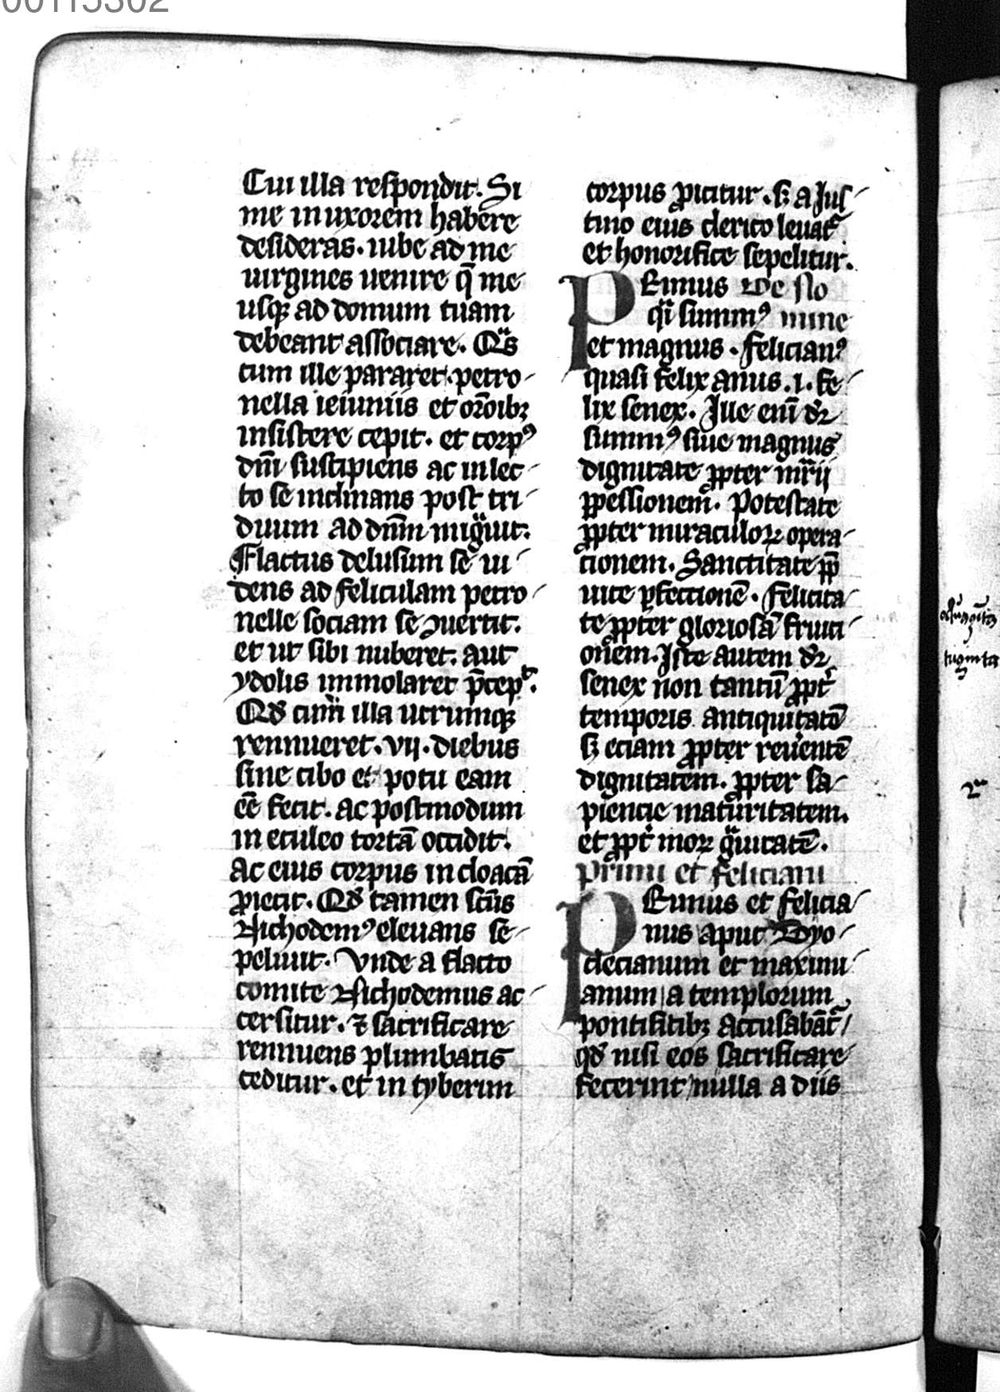 00115302
Cui illa respondit. Si
me in uxorem habere
desideras. iube ad me
uirgines uenire q̄ me
usq3 ad domum tuam
debeant associare. Qd̄
cum ille pararet. petro-
nella ieiuniis et orōib3
insistere cepit. et corpꝰ
dn̄i suscipiens ac in lec-
to se inclinans post tri-
duum ad dn̄m migͣuit.
Flactus delusum se ui-
dens ad feliculam petro-
nelle sociam se ꝯuertit.
et ut sibi nuberet. aut
ydolis immolaret p̄cepᵗ.
Qd̄ cum illa utrumq3
rennueret. vij. diebus
sine cibo et potu eam
eē fecit. ac postmodum
in eculeo tortā occidit.
Ac eius corpus in cloacā
ꝓiecit. Qd̄ tamen sc̄us
Nichodemꝰ eleuans se-
peliuit. Vnde a flacto
comite Nichodemus ac-
cersitur. ⁊ sacrificare
rennuens plumbatis
ceditur. et in tyberim
corpus ꝓicitur. s3 a Jus-
tino eius clerico leuat᷑
et honorifice sepelitur.
PRimus
qͣi summꝰ
et magnus. felicianꝰ
quasi felix anus. i. fe-
lix senex. Ille eni᷑ dr̄
summꝰ siue magnus
dignitate ꝓpter mr̄ij
ꝓpessionem. Potestate
ꝓpter miraculoꝝ opera-
cionem. Sanctitate ꝓp̄
uite ꝑfectionē. Felicita-
te ꝓpter gloriosā fruici-
onem. Iste autem dr̄
senex non tantū ꝓpt᷑
temporis antiquitatē
s3 eciam ꝓpter reuerentē
dignitatem. ꝓpter sa-
piencie maturitatem.
et ꝓpt᷑ moꝝ gͣuitatē.
primi et feliciani
PRimus et felicia-
nus aput Dyo-
clecianum et maximi-
anum a templorum
pontificib3 accusabāt᷑
qd̄ nisi eos sacrificare
fecerint nulla a diis